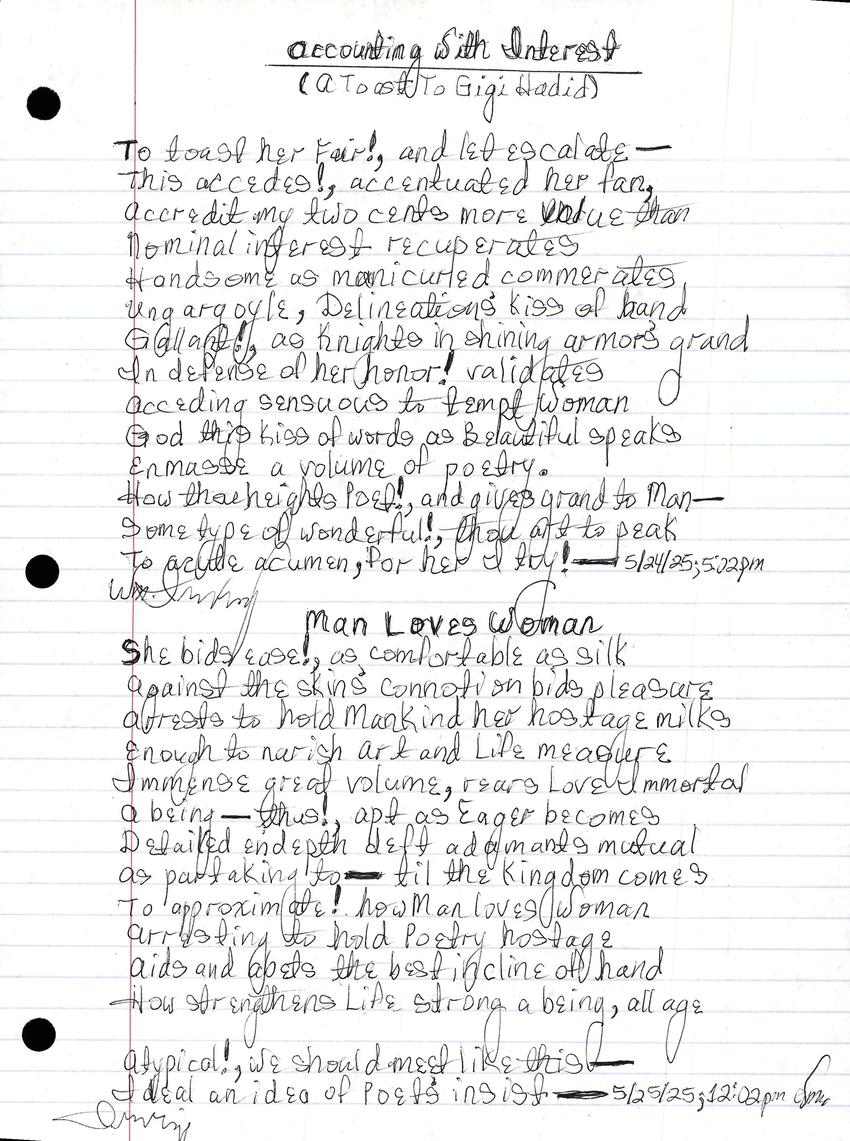 Accounting With Interest
(A Toast To Gigi Hadid)
To toast her Fair!, and let escalate —
This accedes!, accentuated her fan,
accredit my two cents more value than
Nominal interest recuperates
Handsome as manicured commerates
Ungargoyle, Delineations' Kiss of hand
Gallant!, as Knights in shining armor's grand
In defense of her honor! validates
acceding sensuous to tempt Woman
God this Kiss of words as Beautiful speaks
Enmasse a volume of poetry.
How thee heights Poet!, and gives grand to Man—
Some type of wonderful!, thou art to peak
To acute acumen, For her I try! — 5/24/25; 5:02pm
Wm
Man Loves Woman
She bids ease!, as comfortable as silk
against the skin's connotion bids pleasure
arrests to hold Mankind her hostage milks
Enough to narish Art and Life measure
Immense great volume, rears Love Immortal
a being — thus!, apt as Eager becomes
Detailed endepth deft adamants mutual
as partaking to — til the Kingdom comes
To approximate! how Man loves Woman
arresting to hold Poetry hostage
aids and abets the best incline off hand
How strengthens Life strong a being, all age
atypical!, we should meet like this —
Ideal an idea of Poet's insist — 5/25/25; 12:02pm